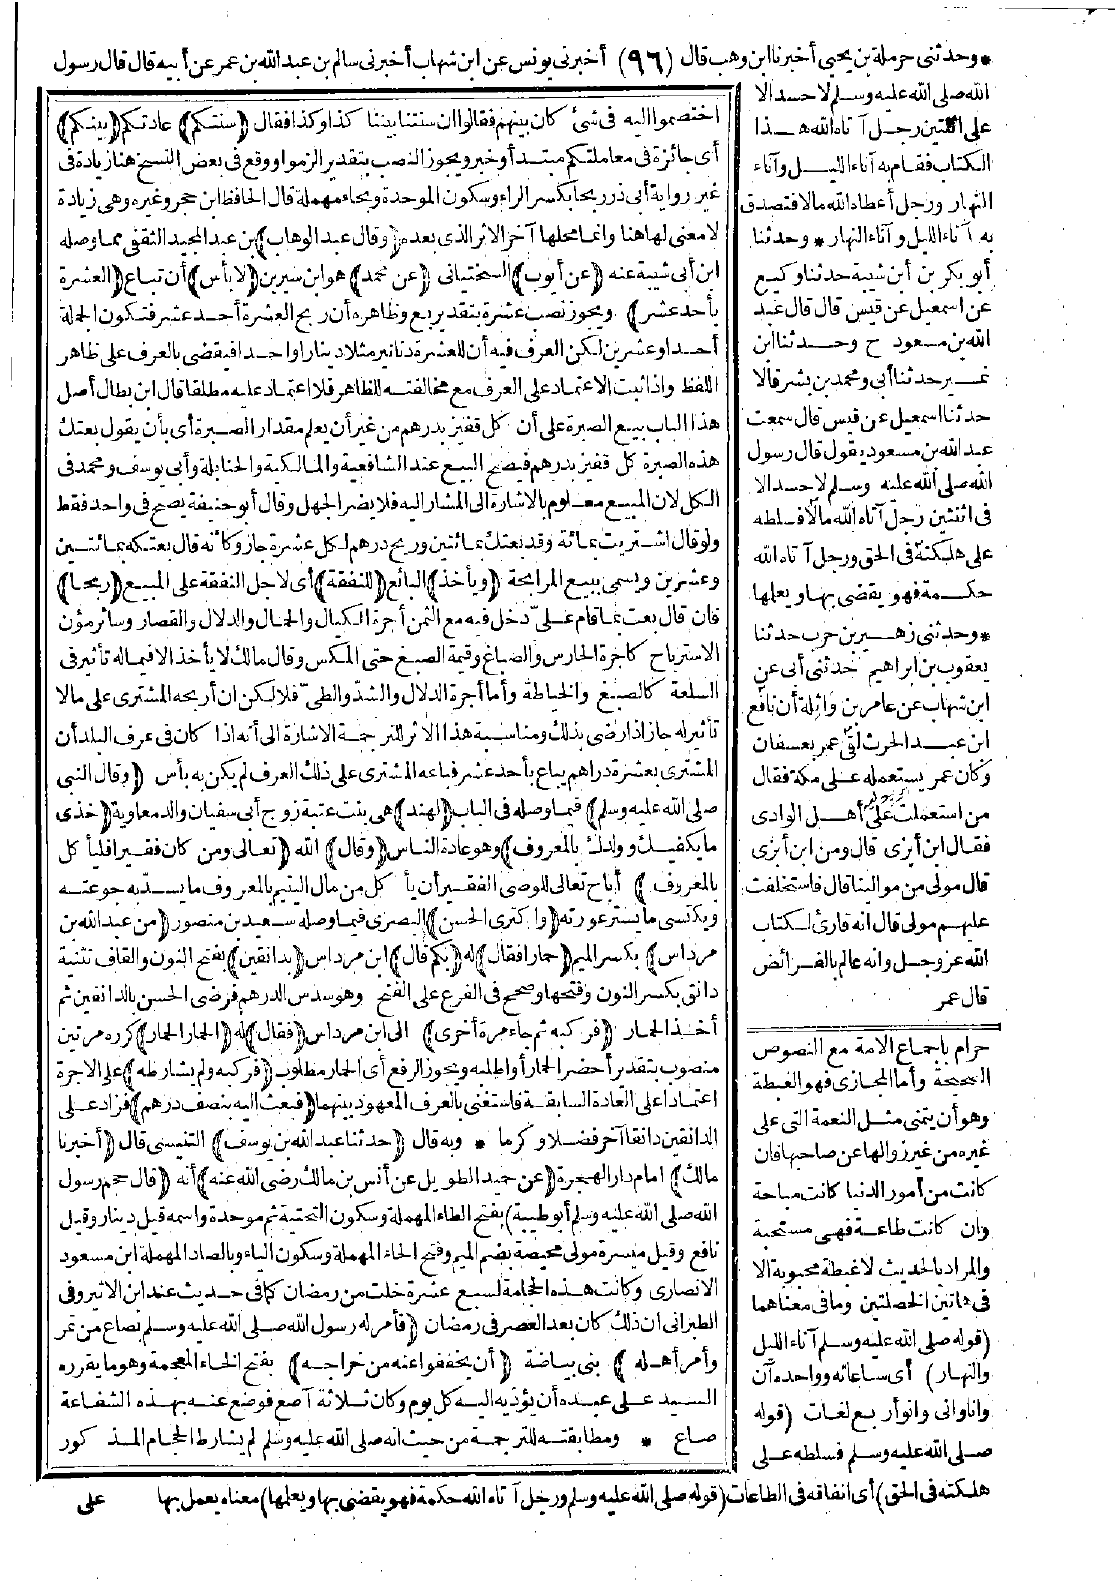 * وحدثنى حرملة بن يحيى أخبرنا ابن وهب قال (٩٦) أخبرنى يونس عن ابن شهاب أخبرنى سالم بن عبد الله بن عمر عن أبيه قال قال رسول
الله صلى الله عليه وسلم لا حسد الا
على اثنتين رجل آتاه الله هذا
الكتاب فقام به آناء الليل وآناء
النهار ورجل أعطاه الله مالا فتصدق
به آناء الليل وآناء النهار * وحدثنا
أبو بكر بن أبى شيبة حدثنا وكيع
عن اسمعيل عن قيس قال قال عبد
الله بن مسعود ح وحدثنا ابن
نمير حدثنا أبى ومحمد بن بشر قالا
حدثنا اسمعيل عن قيس قال سمعت
عبد الله بن مسعود يقول قال رسول
الله صلى الله عليه وسلم لا حسد الا
فى اثنتين رجل آتاه الله مالا فسلطه
على هلكته فى الحق ورجل آتاه الله
حكمة فهو يقضى بها ويعلمها
* وحدثنى زهير بن حرب حدثنا
يعقوب بن ابراهيم حدثنى أبى عن
ابن شهاب عن عامر بن واثلة أن نافع
ابن عبد الحرث لقى عمر بعسفان
وكان عمر يستعمله على مكة فقال
من استعملت على أهل الوادى
فقال ابن أبزى قال ومن ابن أبزى
قال مولى من موالينا قال فاستخلفت
عليهم مولى قال انه قارئ لكتاب
الله عز وجل وانه عالم بالفرائض
قال عمر
حرام باجماع الامة مع النصوص
الصحيحة وأما المجازى فهو الغبطة
وهو أن يتمنى مثل النعمة التى على
غيره من غير زوالها عن صاحبها فان
كانت من أمور الدنيا كانت مباحة
وان كانت طاعة فهى مستحبة
والمراد بالحديث لا غبطة محبوبة الا
فى هاتين الخصلتين وما فى معناهما
(قوله صلى الله عليه وسلم آناء الليل
والنهار) أى ساعاته وواحده آن
وانا وانى وانو أربع لغات (قوله
صلى الله عليه وسلم فسلطه على
هلكته فى الحق) أى انفاقه فى الطاعات (قوله صلى الله عليه وسلم ورجل آتاه الله حكمة فهو يقضى بها ويعلمها) معناه يعمل بها على
اختصموا اليه فى شئ كان بينهم فقالوا ان سنتنا بيننا كذا وكذا فقال (سنتكم) عادتكم (بينكم)
أى جائزة فى معاملتكم مبتدأ وخبر ويجوز النصب بتقدير الزموا ووقع فى بعض النسخ هنا زيادة فى
غير رواية أبى ذر ربحا بكسر الراء وسكون الموحدة وبحاء مهملة قال الحافظ ابن حجر وغيره وهى زيادة
لا معنى لها هنا وانما محلها آخر الاثر الذى بعده (وقال عبد الوهاب) بن عبد المجيد الثقفى مما وصله
ابن أبى شيبة عنه (عن أيوب) السختيانى (عن محمد) هو ابن سيرين (لا بأس) أن تباع (العشرة
بأحد عشر) ويجوز نصب عشرة بتقدير بع وظاهره أن ربح العشرة أحد عشر فتكون الجملة
أحدا وعشرين لكن العرف فيه أن للعشرة دنانير مثلا دينارا واحدا فيقضى بالعرف على ظاهر
اللفظ واذا ثبت الاعتماد على العرف مع مخالفته للظاهر فلا اعتماد عليه مطلقا قال ابن بطال أصل
هذا الباب بيع الصبرة على أن كل قفيز بدرهم من غير أن يعلم مقدار الصبرة أى بأن يقول بعتك
هذه الصبرة كل قفيز بدرهم فيصح البيع عند الشافعية والمالكية والحنابلة وأبى يوسف ومحمد فى
الكل لان المبيع معلوم بالاشارة الى المشار اليه فلا يضر الجهل وقال أبو حنيفة يصح فى واحد فقط
ولو قال اشتريت بمائة وقد بعتك بمائتين وربح درهم لكل عشرة جاز وكأنه قال بعتكه بمائتين
وعشرين ويسمى بيع المرابحة (ويأخذ) البائع (للنفقة) أى لاجل النفقة على المبيع (ربحا)
فان قال بعت بما قام علىّ دخل فيه مع الثمن أجرة الكيال والحمال والدلال والقصار وسائر مؤن
الاسترباح كأجرة الحارس والصباغ وقيمة الصبغ حتى المكس وقال مالك لا يأخذ الا فيما له تأثير فى
السلعة كالصبغ والخياطة وأما أجرة الدلال والشد والطىّ فلا لكن ان أربحه المشترى على مالا
تأثير له جاز اذا رضى بذلك ومناسبة هذا الاثر للترجمة الاشارة الى أنه اذا كان فى عرف البلد أن
المشترى بعشرة دراهم يباع بأحد عشر فباعه المشترى على ذلك العرف لم يكن به بأس (وقال النبى
صلى الله عليه وسلم) فيما وصله فى الباب (لهند) هى بنت عتبة زوج أبى سفيان والد معاوية (خذى
ما يكفيك وولدك بالمعروف) وهو عادة الناس (وقال) الله (تعالى ومن كان فقيرا فليأكل
بالمعروف) أباح تعالى للوصى الفقير أن يأكل من مال اليتيم بالمعروف ما يسد به جوعته
ويكتسى ما يستر عورته (واكترى الحسن) البصرى فيما وصله سعيد بن منصور (من عبد الله بن
مرداس) بكسر الميم (حمارا فقال) له (بكم قال) ابن مرداس (بدانقين) بفتح النون والقاف تثنية
دانق بكسر النون وفتحها وصحح فى الفرع على الفتح وهو سدس الدرهم فرضى الحسن بالدانقين ثم
أخذ الحمار (فركبه ثم جاء مرة أخرى) الى ابن مرداس (فقال) له (الحمار الحمار) كرره مرتين
منصوب بتقدير أحضر الحمار أو اطلبه ويجوز الرفع أى الحمار مطلوب (فركبه ولم يشارطه) على الاجرة
اعتمادا على العادة السابقة فاستغنى بالعرف المعهود بينهما (فبعث اليه بنصف درهم) فزاد على
الدانقين دانقا آخر فضلا وكرما * وبه قال (حدثنا عبد الله بن يوسف) التنيسى قال (أخبرنا
مالك) امام دار الهجرة (عن حميد الطويل عن أنس بن مالك رضى الله عنه) أنه (قال حجم رسول
الله صلى الله عليه وسلم أبو طيبة) بفتح الطاء المهملة وسكون التحتية ثم موحدة واسمه قيل دينار وقيل
نافع وقيل ميسرة مولى محيصة بضم الميم وفتح الحاء المهملة وسكون الياء وبالصاد المهملة ابن مسعود
الانصارى وكانت هذه الحجامة لسبع عشرة خلت من رمضان كما فى حديث عند ابن الاثير وفى
الطبرانى ان ذلك كان بعد العصر فى رمضان (فأمر له رسول الله صلى الله عليه وسلم بصاع من تمر
وأمر أهله) بنى بياضة (أن يخففوا عنه من خراجه) بفتح الخاء المعجمة وهو ما يقرره
السيد على عبده أن يؤديه اليه كل يوم وكان ثلاثة آصع فوضع عنه بهذه الشفاعة
صاع * ومطابقته للترجمة من حيث انه صلى الله عليه وسلم لم يشارط الحجام المذكور